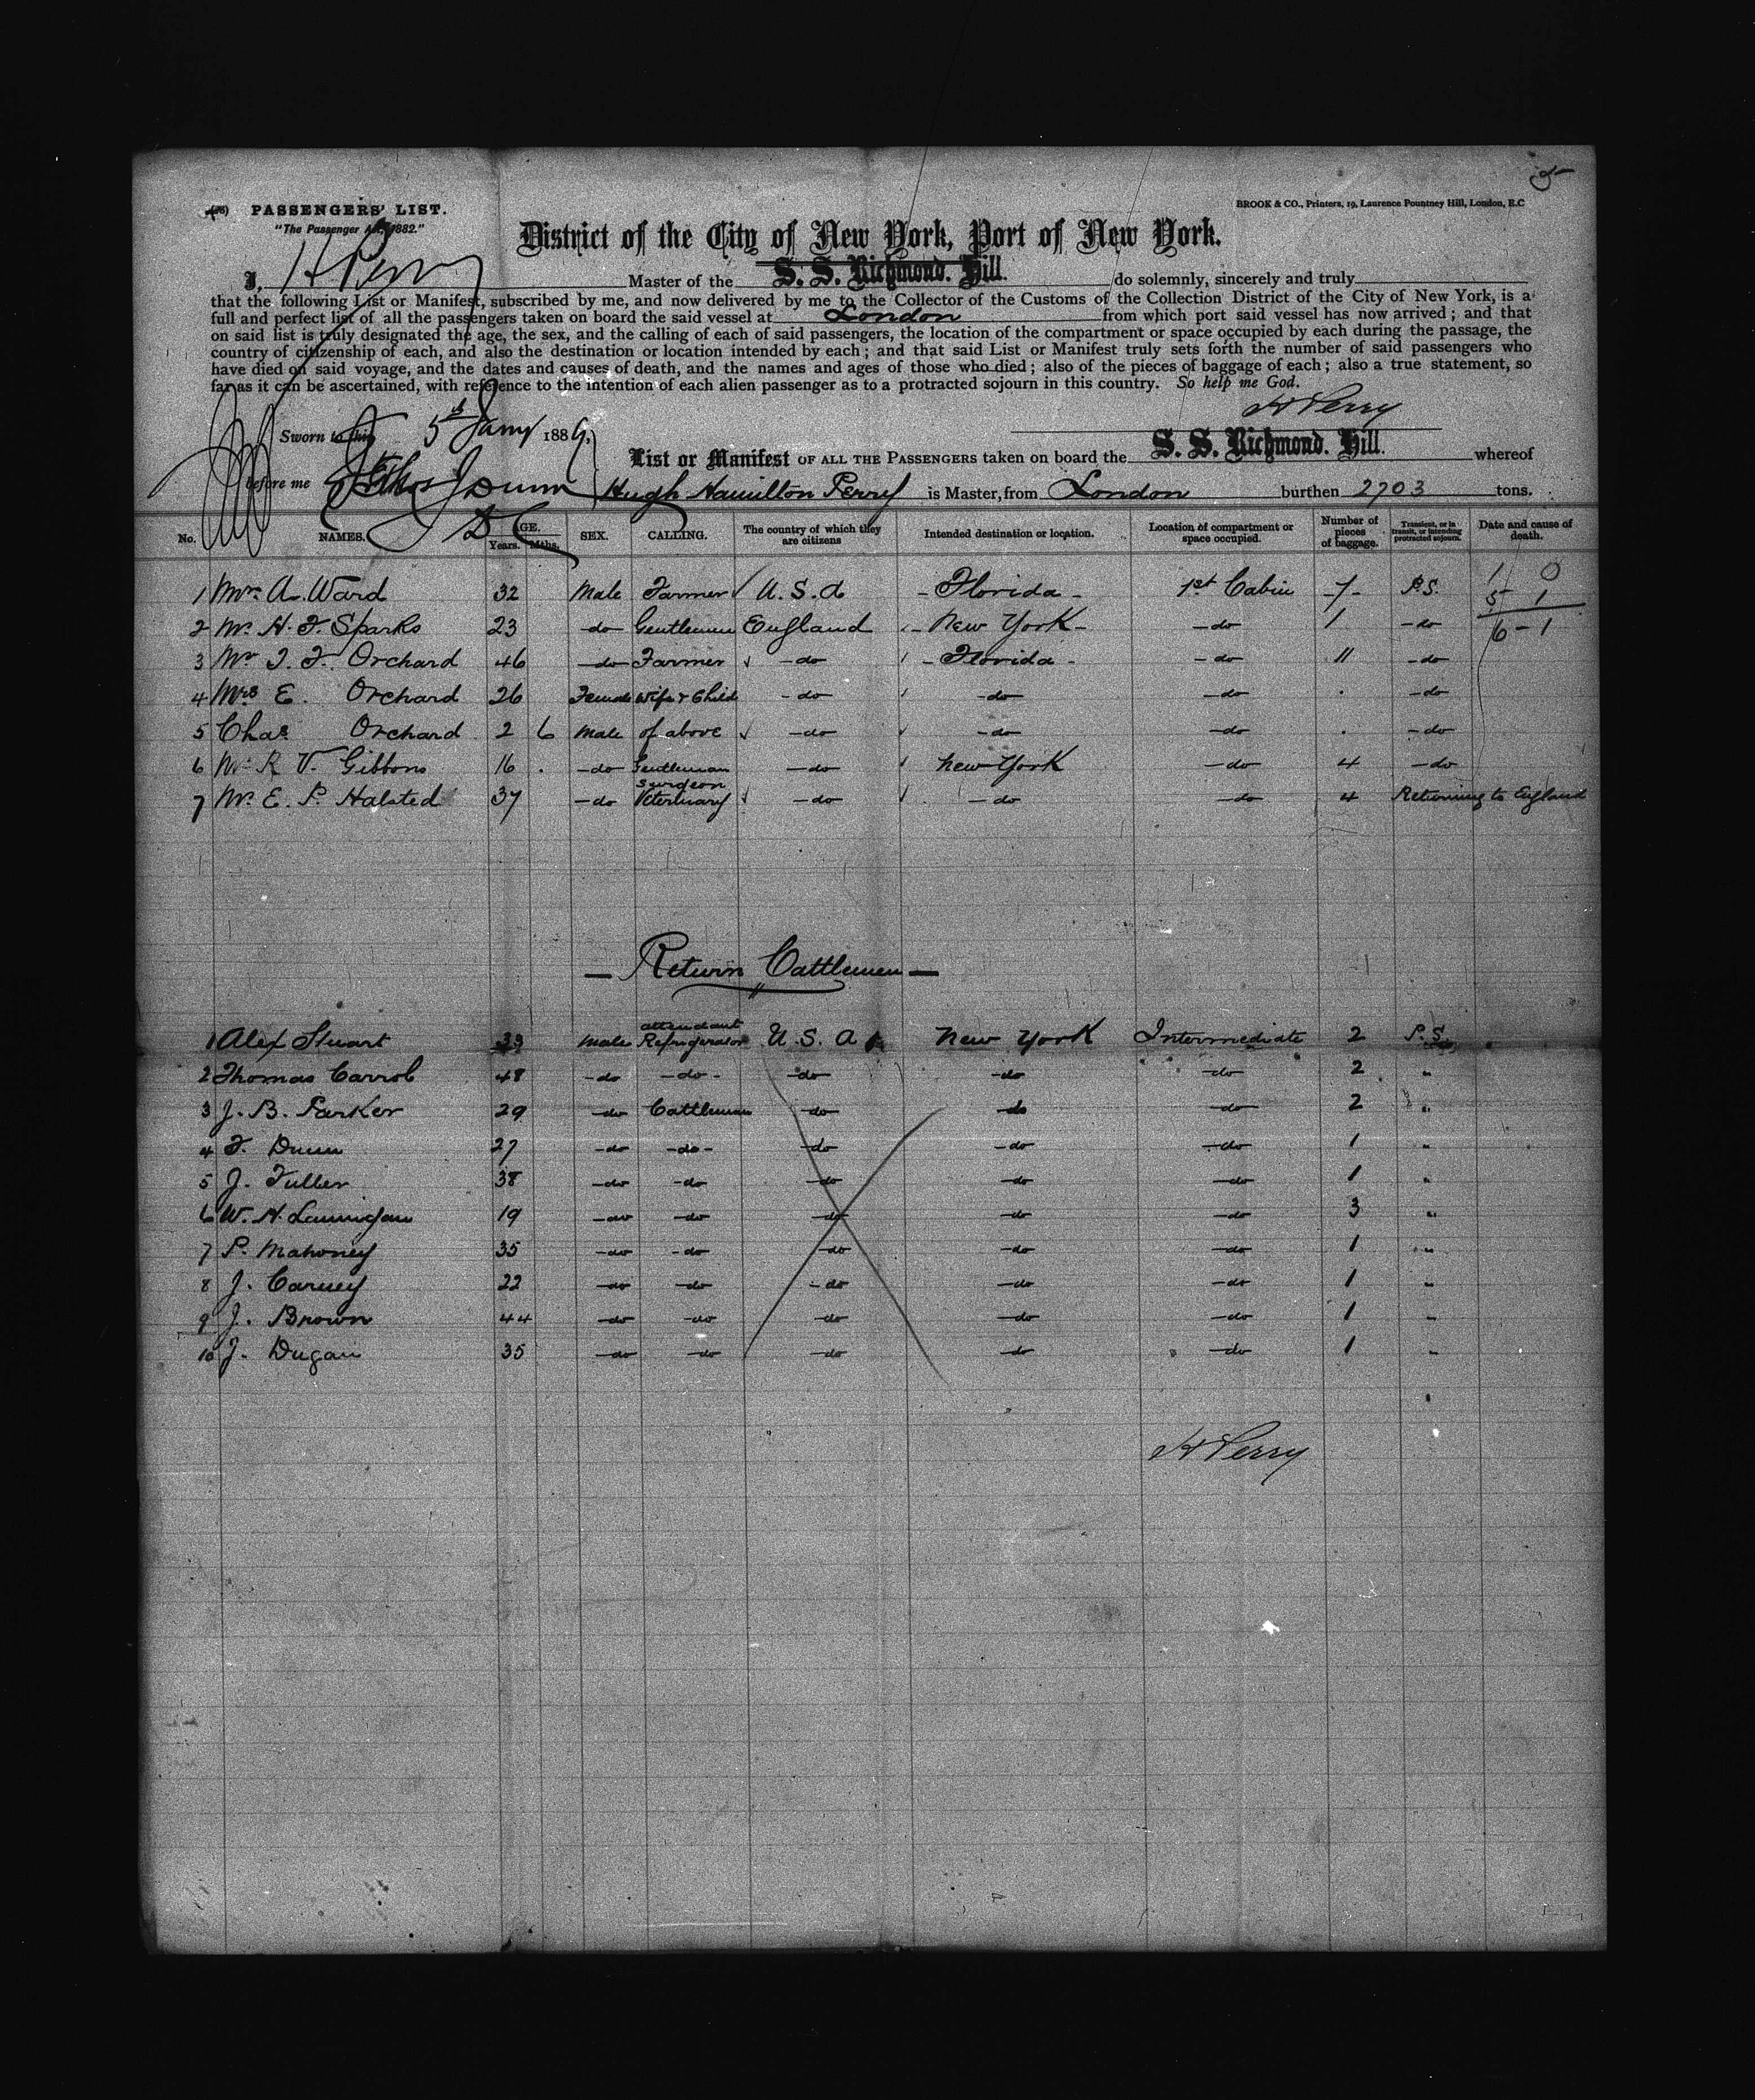 (76) PASSENGERS' LIST.
"The Passenger Act, 1882."
BROOK & CO., Printers, 19, Laurence Pountney Hill, London, E.C
District of the City of New York, Port of New York.
I, H Perry Master of the S. S. Richmond. Hill. do solemnly, sincerely and truly
that the following List or Manifest, subscribed by me, and now delivered by me to the Collector of the Customs of the Collection District of the City of New York, is a
full and perfect list of all the passengers taken on board the said vessel at London from which port said vessel has now arrived; and that
on said list is truly designated the age, the sex, and the calling of each of said passengers, the location of the compartment or space occupied by each during the passage, the
country of citizenship of each, and also the destination or location intended by each; and that said List or Manifest truly sets forth the number of said passengers who
have died on said voyage, and the dates and causes of death, and the names and ages of those who died; also of the pieces of baggage of each; also a true statement, so
far as it can be ascertained, with reference to the intention of each alien passenger as to a protracted sojourn in this country. So help me God.
H Perry
Sworn to this 5th Jany 1889,
List or Manifest OF ALL THE PASSENGERS taken on board the S. S. Richmond. Hill. whereof
before me Hugh Hamilton Perry is Master, from London burthen 2703 tons.
No. NAMES. AGE. Years. Mths. SEX. CALLING. The country of which they are citizens Intended destination or location. Location of compartment or space occupied. Number of pieces of baggage. Transient, or in transit, or intending protracted sojourn. Date and cause of death.
1 Mr. A. Ward 32 Male Farmer U.S.A - Florida - 1st Cabin -7- P.S. 1 0
2 Mr. H. F. Sparks 23 -do Gentleman England - New York - -do 1 -do 5 1
6 - 1
3 Mr J. F. Orchard 46 -do Farmer -do - Florida - -do 11 -do
4 Mrs E. Orchard 26 Female Wife & Child -do -do -do -do
5 Chas Orchard 2 6 Male of above -do -do -do -do
6 Mr R V. Gibbons 16 -do Gentleman -do New York -do 4 -do
7 Mr. E. P. Halsted 37 -do Surgeon Veterinary -do -do -do 4 Returning to England
- Return Cattlemen -
1 Alex Stuart 33 Male attendant Refrigerator U.S.A New York Intermediate 2 P.S.
2 Thomas Carrol 48 -do -do- -do -do -do 2 "
3 J. B. Parker 29 -do Cattleman -do -do -do 2 "
4 F. Dunn 27 -do -do- -do -do -do 1 "
5 J. Fuller 38 -do -do -do -do -do 1 "
6 W. H. Lannigan 19 -do -do -do -do -do 3 "
7 P. Mahoney 35 -do -do -do -do -do 1 "
8 J. Carney 22 -do -do -do -do -do 1 "
9 J. Brown 44 -do -do -do -do -do 1 "
10 J. Dugan 35 -do -do -do -do -do 1 "
H Perry